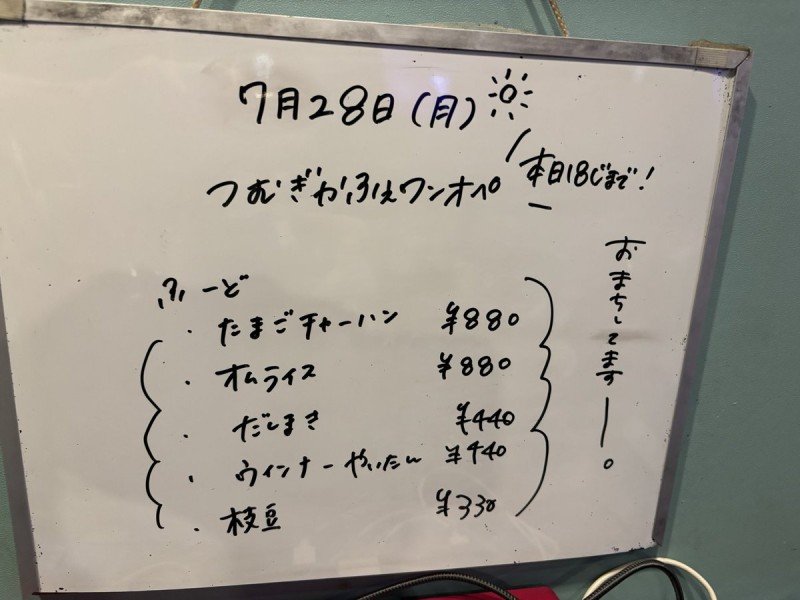 7月28日(月)
つむぎかふぇワンオペ
本日18じまで!
おまちしてますー。
ふーど
・たまごチャーハン ¥880
・オムライス ¥880
・だしまき ¥440
・ウィンナーやいたん ¥440
・枝豆 ¥330